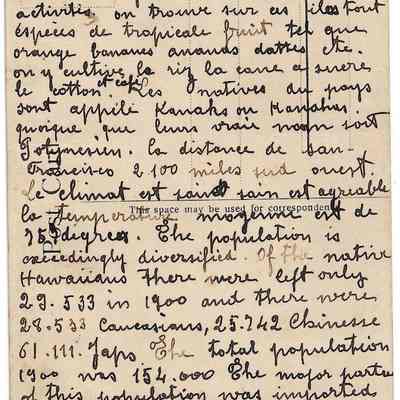 activités, on trouve sur ces iles tout
especes de tropicale fruit tel que
orange bananes ananas dattes etc.
on y cultive la riz la cane a sucre
le cotton et café Les natives du pays
sont appilé Kanaks ou Kanakas
quoique que leurs vraie nom soit
Polynesien. la distance de San-
Francisco 2100 miles sud ouest.
Le climat est sain est agréable
This space may be used for corresponden
la temperature moyenne est de
75 degres. The population is
exceedingly diversified. Of the native
Hawaiians there were left only
29.533 in 1900 and there were
28.533 Caucasians, 25.742 Chinesse
61.111. Japs The total population
1900 was 154.000 The major parte
of this population was imported